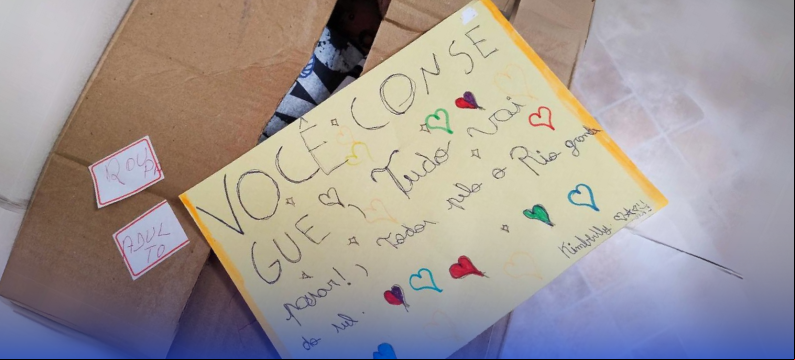 ROUPA
ADUL
TO
VOCÊ CONSE
GUE, Tudo vai
passar!) Todos pelo o Rio grande
do sul.
Kimbilly